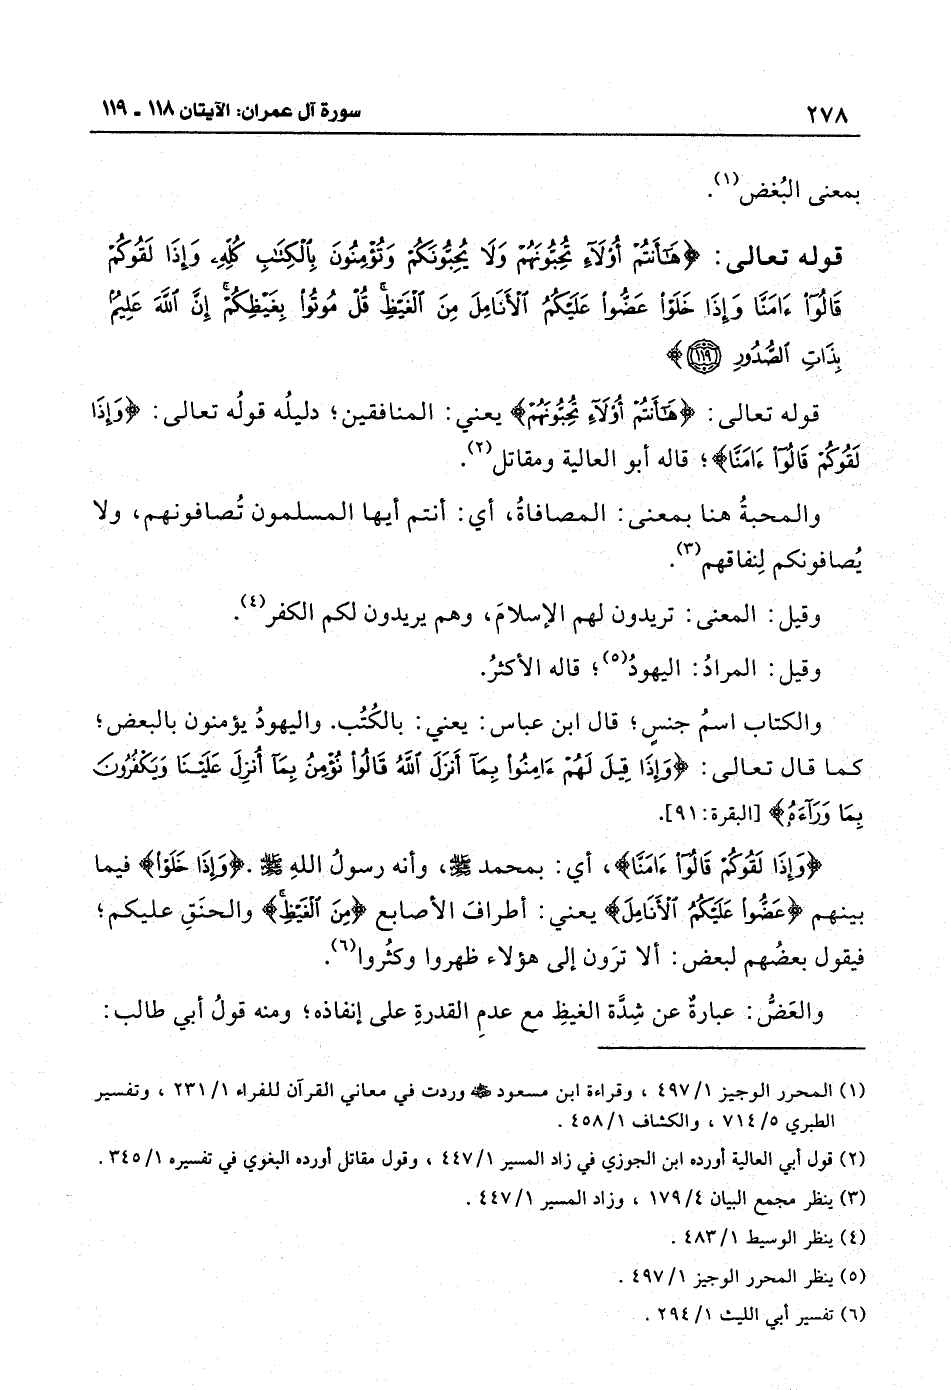 ٢٧٨ سورة آل عمران: الآيتان ١١٨ ـ ١١٩
بمعنى البُغض(١).
قوله تعالى: ﴿هَٰٓأَنتُمْ أُوْلَآءِ تُحِبُّونَهُمْ وَلَا يُحِبُّونَكُمْ وَتُؤْمِنُونَ بِٱلْكِتَٰبِ كُلِّهِۦ وَإِذَا لَقُوكُمْ
قَالُوٓاْ ءَامَنَّا وَإِذَا خَلَوْاْ عَضُّواْ عَلَيْكُمُ ٱلْأَنَامِلَ مِنَ ٱلْغَيْظِۚ قُلْ مُوتُواْ بِغَيْظِكُمْۗ إِنَّ ٱللَّهَ عَلِيمٌۢ
بِذَاتِ ٱلصُّدُورِ ١١٩﴾
قوله تعالى: ﴿هَٰٓأَنتُمْ أُوْلَآءِ تُحِبُّونَهُمْ﴾ يعني: المنافقين؛ دليلُه قولُه تعالى: ﴿وَإِذَا
لَقُوكُمْ قَالُوٓاْ ءَامَنَّا﴾؛ قاله أبو العالية ومقاتل(٢).
والمحبةُ هنا بمعنى: المصافاةُ، أي: أنتم أيها المسلمون تُصافونهم، ولا
يُصافونكم لِنفاقهم(٣).
وقيل: المعنى: تريدون لهم الإسلامَ، وهم يريدون لكم الكفر(٤).
وقيل: المرادُ: اليهودُ(٥)؛ قاله الأكثرُ.
والكتاب اسمُ جنسٍ؛ قال ابن عباس: يعني: بالكُتُب. واليهودُ يؤمنون بالبعض؛
كما قال تعالى: ﴿وَإِذَا قِيلَ لَهُمْ ءَامِنُواْ بِمَآ أَنزَلَ ٱللَّهُ قَالُواْ نُؤْمِنُ بِمَآ أُنزِلَ عَلَيْنَا وَيَكْفُرُونَ
بِمَا وَرَآءَهُ﴾ [البقرة: ٩١].
﴿وَإِذَا لَقُوكُمْ قَالُوٓاْ ءَامَنَّا﴾، أي: بمحمد ﷺ، وأنه رسولُ اللهِ ﷺ. ﴿وَإِذَا خَلَوْاْ﴾ فيما
بينهم ﴿عَضُّواْ عَلَيْكُمُ ٱلْأَنَامِلَ﴾ يعني: أطرافَ الأصابع ﴿مِنَ ٱلْغَيْظِۚ﴾ والحنَقِ عليكم؛
فيقول بعضُهم لبعض: ألا ترَون إلى هؤلاء ظهروا وكثُروا(٦).
والعَضُّ: عبارةٌ عن شِدَّة الغيظِ مع عدمِ القدرةِ على إنفاذه؛ ومنه قولُ أبي طالب:
(١) المحرر الوجيز ٤٩٧/١ ، وقراءة ابن مسعود ﷺ وردت في معاني القرآن للفراء ٢٣١/١ ، وتفسير
الطبري ٧١٤/٥ ، والكشاف ٤٥٨/١ .
(٢) قول أبي العالية أورده ابن الجوزي في زاد المسير ٤٤٧/١ ، وقول مقاتل أورده البغوي في تفسيره ٣٤٥/١ .
(٣) ينظر مجمع البيان ١٧٩/٤ ، وزاد المسير ٤٤٧/١ .
(٤) ينظر الوسيط ٤٨٣/١ .
(٥) ينظر المحرر الوجيز ٤٩٧/١ .
(٦) تفسير أبي الليث ٢٩٤/١ .